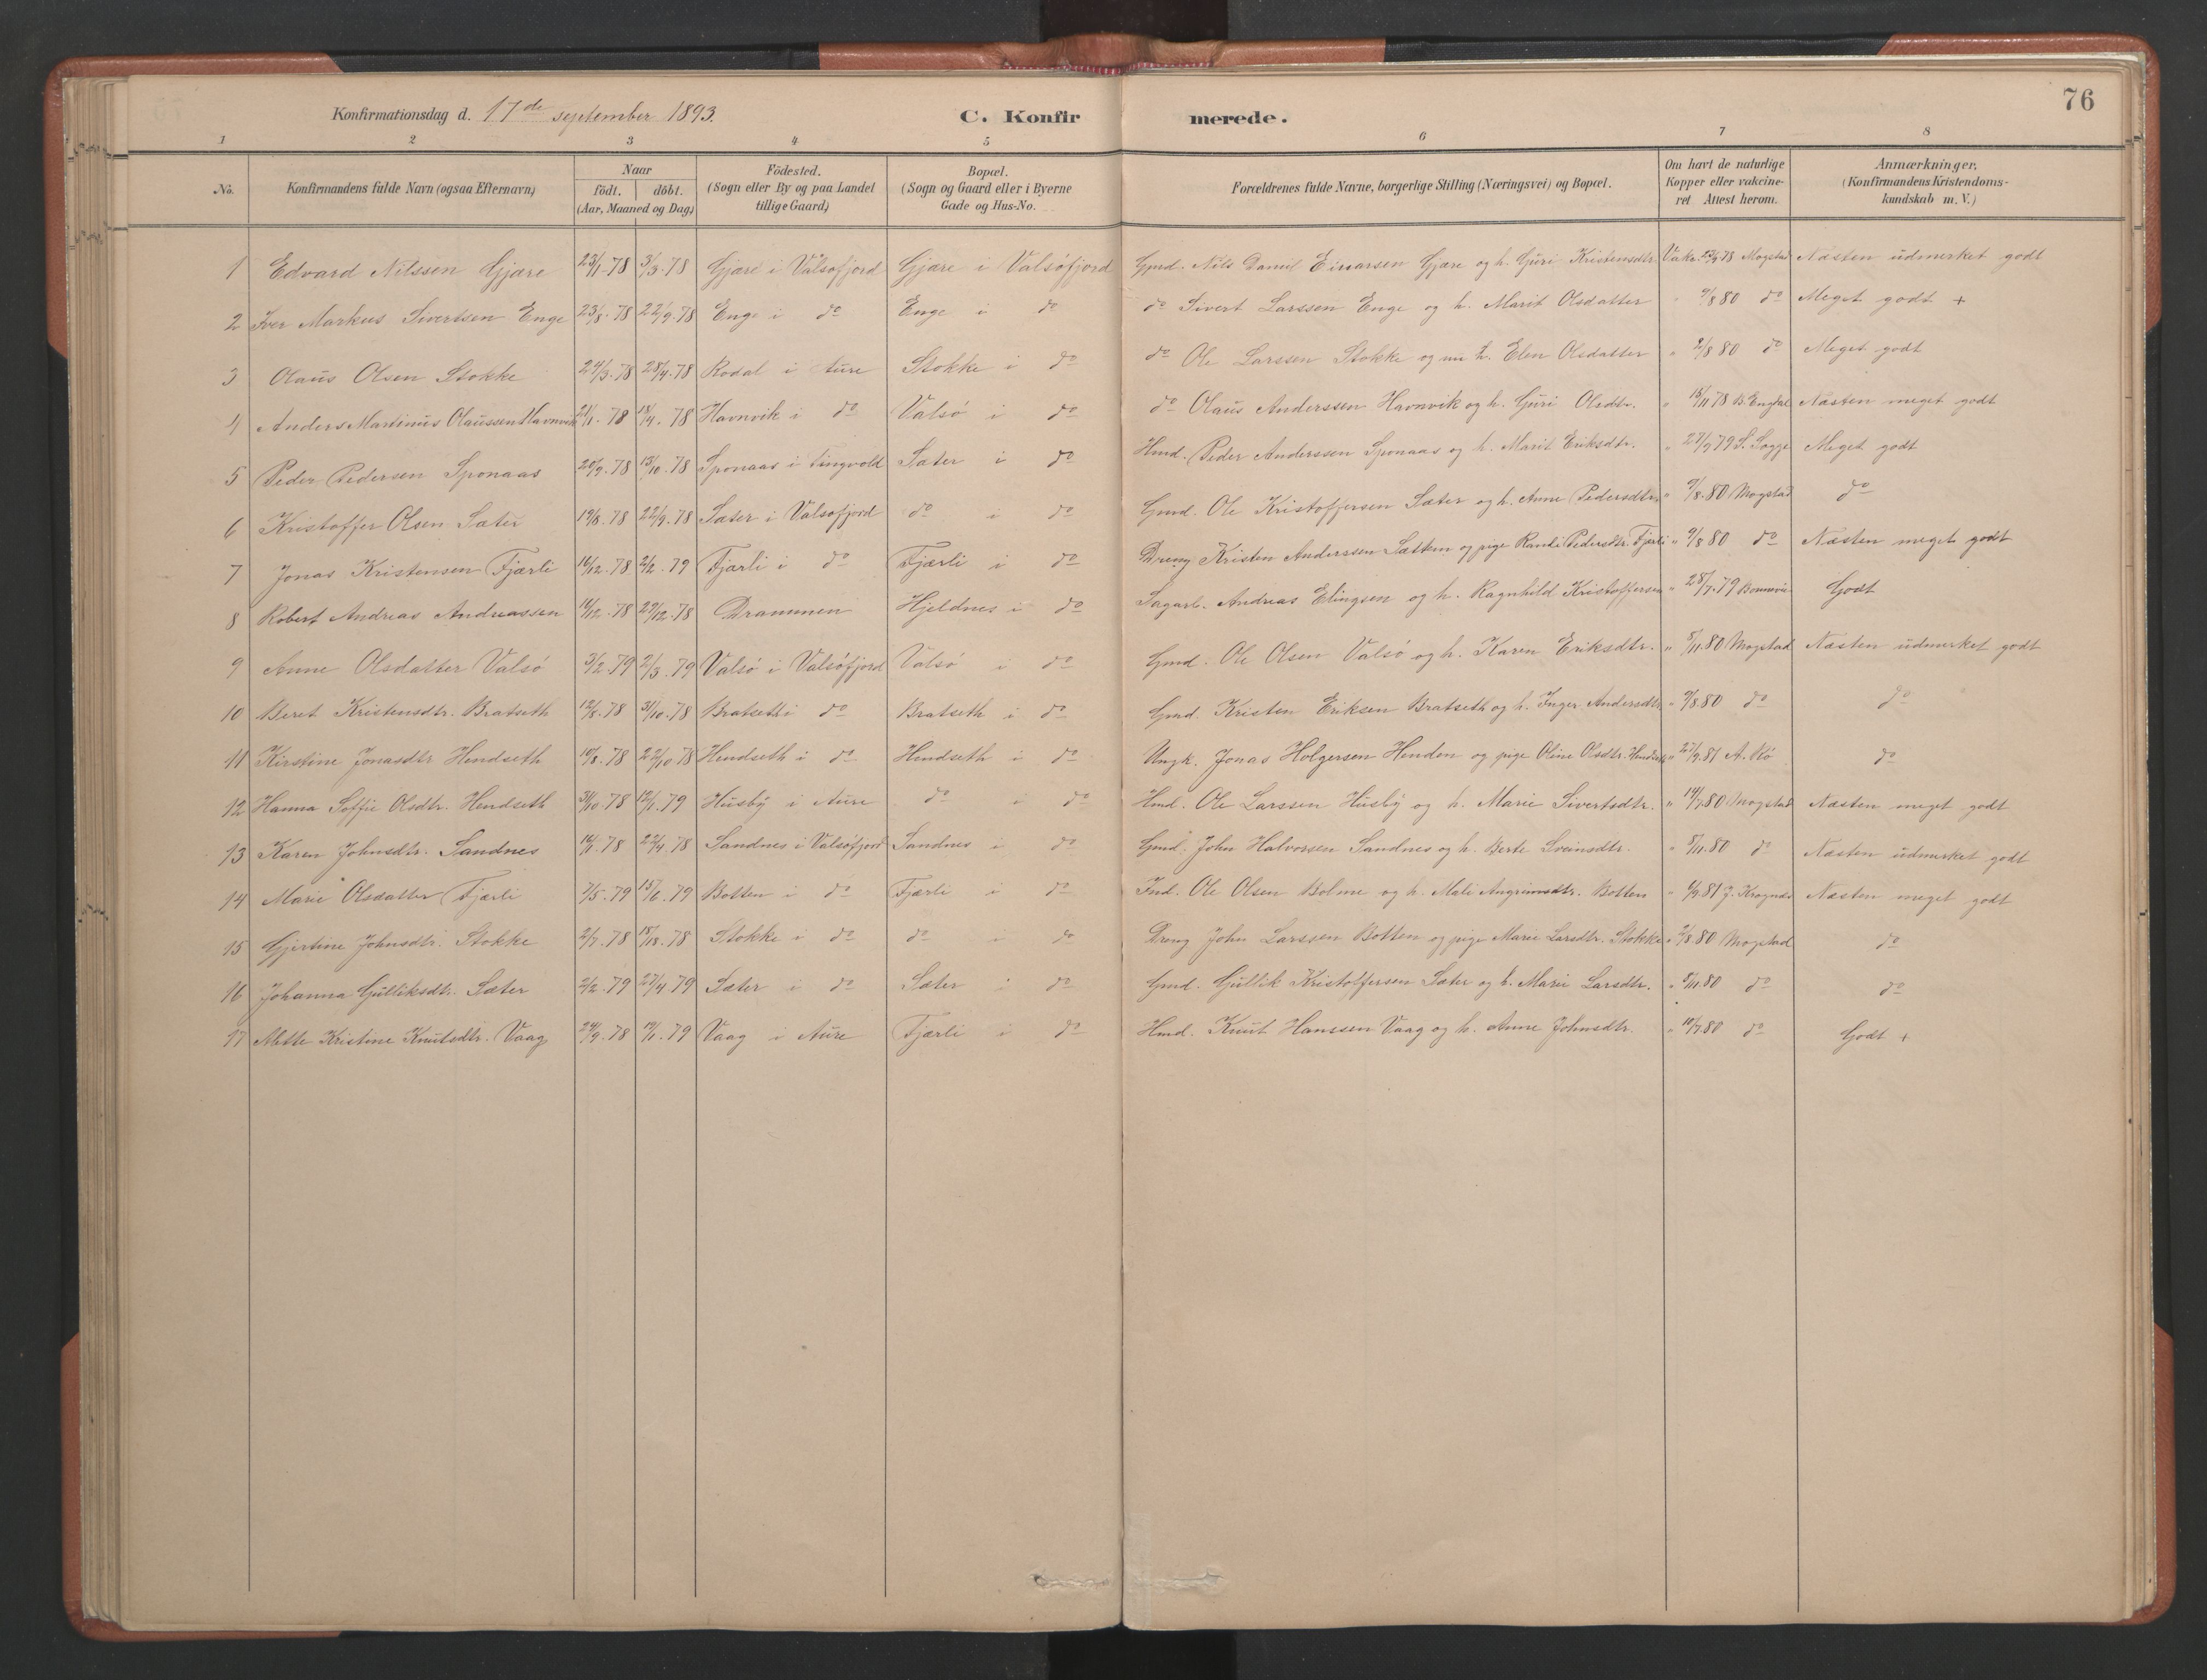 76
Konfirmationsdag d. 17de september 1893. C. Konfirmerede.
1 2 3 4 5 6 7 8
No. Konfirmandens fulde Navn (ogsaa Efternavn) Naar födt. döbt. (Aar, Maaned og Dag) Födested. (Sogn eller By og paa Landet tillige Gaard) Bopæl. (Sogn og Gaard eller i Byerne Gade og Hus-No. Forældrenes fulde Navne, borgerlige Stilling (Næringsvei) og Bopæl. Om havt de naturlige Kopper eller vakcineret Attest herom. Anmærkninger. (Konfirmandens Kristendomskundskab m. V.)
1 Edvard Nilssen Gjære 23/1-78 3/3-78 Gjære i Valsøfjord Gjære i Valsøfjord Gmd. Nils Daniel Einarsen Gjære og h. Guri Kristensdtr. Vakc. 78 Mogstad Næsten udmerket godt
2 Iver Markus Sivertsen Enge 23/8-78 22/9-78 Enge i do Enge i do do Sivert Larssen Enge og h. Marit Olsdatter " 9/8 80 do Meget godt +
3 Olaus Olsen Stokke 24/3-78 28/4-78 Rodal i Aure Stokke i do do Ole Larssen Stokke og nu h. Elen Olsdatter " 2/8 80 do Meget godt
4 Anders Martinus Olaussen Havnvik 21/1-78 /4-78 Havnvik i do Valsö i do do Olaus Anderssen Havnvik og h. Guri Olsdtr. " 18/11 78 B. Engdal Næsten meget godt
5 Peder Pedersen Sponaas 20/9-78 13/10-78 Sponaas i Tingvold Sæter i do Hmd. Peder Anderssen Sponaas og h. Marit Eriksdtr. " 27/9 79 S. Sogge Meget godt
6 Kristoffer Olsen Sæter 19/8-78 22/9-78 Sæter i Valsøfjord do i do Gmd. Ole Kristoffersen Sæter og h. Anne Pedersdtr. " 9/8.80 Mogstad do
7 Jonas Kristensen Fjærli 16/12-78 2/2-79 Fjærli i do Fjærli i do Dreng Kristen Anderssen Sætken og pige Randi Pedersdtr. Fjærli " 9/8 80 do Næsten meget godt
8 Robert Andreas Andreassen 16/12-78 29/12-78 Drammen Hjeldnes i do Sagarb. Andreas Elingsen og h. Ragnhild Kristoffersen " 28/7.79 Godt
9 Anne Olsdatter Valsö 3/2-79 2/3-79 Valsö i Valsöfjord Valsö i do Gmd. Ole Olsen Valsö og h. Karen Eriksdtr. " 8/11.80 Mogstad Næsten udmerket godt
10 Beret Kristensdtr. Bratseth 12/8-78 31/10-78 Bratseth i do Bratseth i do Gmd. Kristen Eriksen Bratseth og h. Inger Andersdtr. " 9/8.80 do do
11 Kirstine Jonasdtr Hendseth 10/8-78 22/10 78 Hendseth i do Hendseth i do Ungk. Jonas Holgersen Henden og pige Oline Olsdtr. Hendseth " 27/9.81 A. Bö do
12 Hanna Soffie Olsdtr. Hendseth 31/10-78 12/1-79 Husby i Aure do i do Hmd. Ole Larssen Husby og h. Marie Sivertsdtr. " 14/7.80 Mogstad Næsten meget godt
13 Karen Johnsdtr. Sandnes 16/1-78 22/4-78 Sandnes i Valsöfjord Sandnes i do Gmd. John Halvorsen Sandnes og h. Berte Sveinsdtr. " 8/11.80 do Næsten udmerket godt
14 Marie Olsdatter Fjærli 7/5-79 15/6-79 Botten i do Fjærli i do Ind. Ole Olsen Bolme og h. Mali Angrimsdtr. Botten " 6/9 81 J. Krognæs Næsten meget godt
15 Gjertine Johnsdtr. Stokke 2/7-78 18/8-78 Stokke i do do i do Dreng John Larssen Botten og pige Marie Larsdtr. Stokke " 2/8.80 Mogstad do
16 Johanna Gulliksdtr. Sæter 2/2-79 27/4 79 Sæter i do Sæter i do Gmd. Gullik Kristoffersen Sæter og h. Marie Larsdtr. " 8/11.80 do do
17 Mette Kristine Knutsdtr. Vaag 24/9-78 /1-79 Vaag i Aure Fjærli i do Hmd. Knut Hanssen Vaag og h. Anne Johnsdtr. " 10/7.80 do Godt +